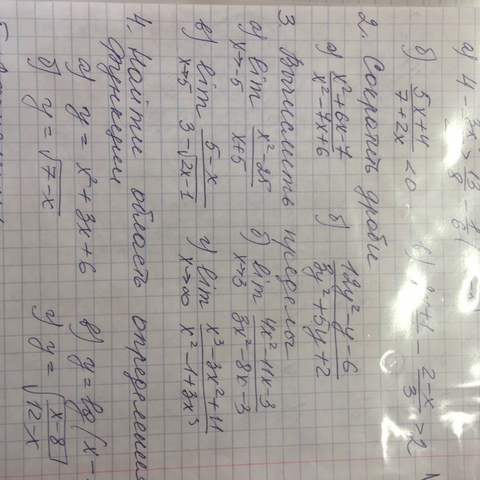 б) (5x+4)/(7+2x) < 0
2. Сократить дроби
а) (x²+6x-7)/(x²-7x+6) б) (12y²-y-6)/(3y²+5y+2)
3. Вычислить пределы
а) lim x→-5 (x²-25)/(x+5) б) lim x→3 (4x²-11x-3)/(3x²-8x-3)
в) lim x→5 (5-x)/(3-√(2x-1)) г) lim x→∞ (x³-3x²+4)/(x²-1+3x³)
4. Найти область определения
функции
а) y = x²+3x+6 в) y = lg(x-
б) y = √(7-x) г) y = √((x-8)/(12-x))